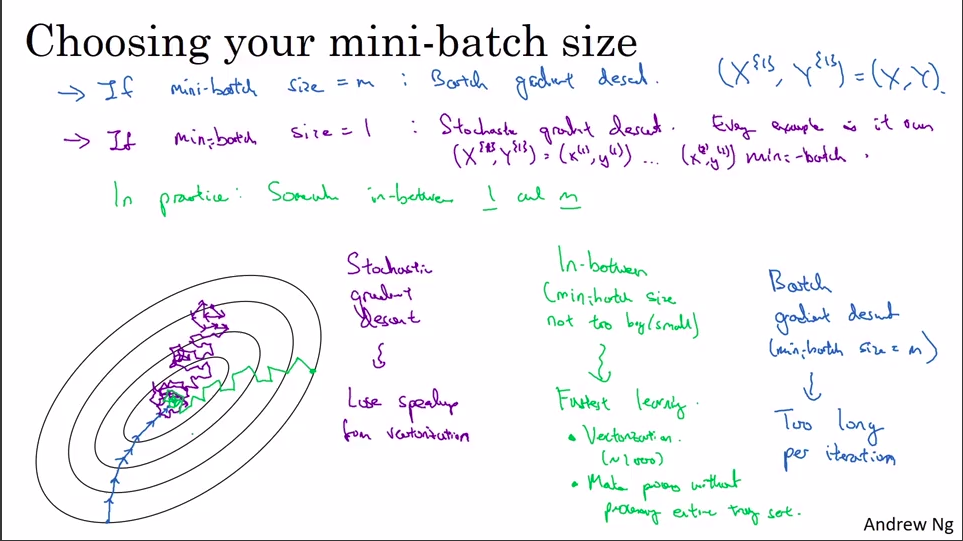 Choosing your mini-batch size
→ If mini-batch size = m : Batch gradient descent. (X^{1}, Y^{1}) = (X, Y).
→ If mini-batch size = 1 : Stochastic gradient descent. Every example is it own
(X^{1}, Y^{1}) = (x^(1), y^(1)) ... (x^(2), y^(2)) mini-batch.
In practice: Somewhere in-between 1 and m
Stochastic
gradient
descent
Lose speedup
from vectorization
In-between
(mini-batch size
not too big/small)
Fastest learning.
• Vectorization.
(~1000)
• Make progress without
processing entire training set.
Batch
gradient descent
(mini-batch size = m)
Too long
per iteration
Andrew Ng